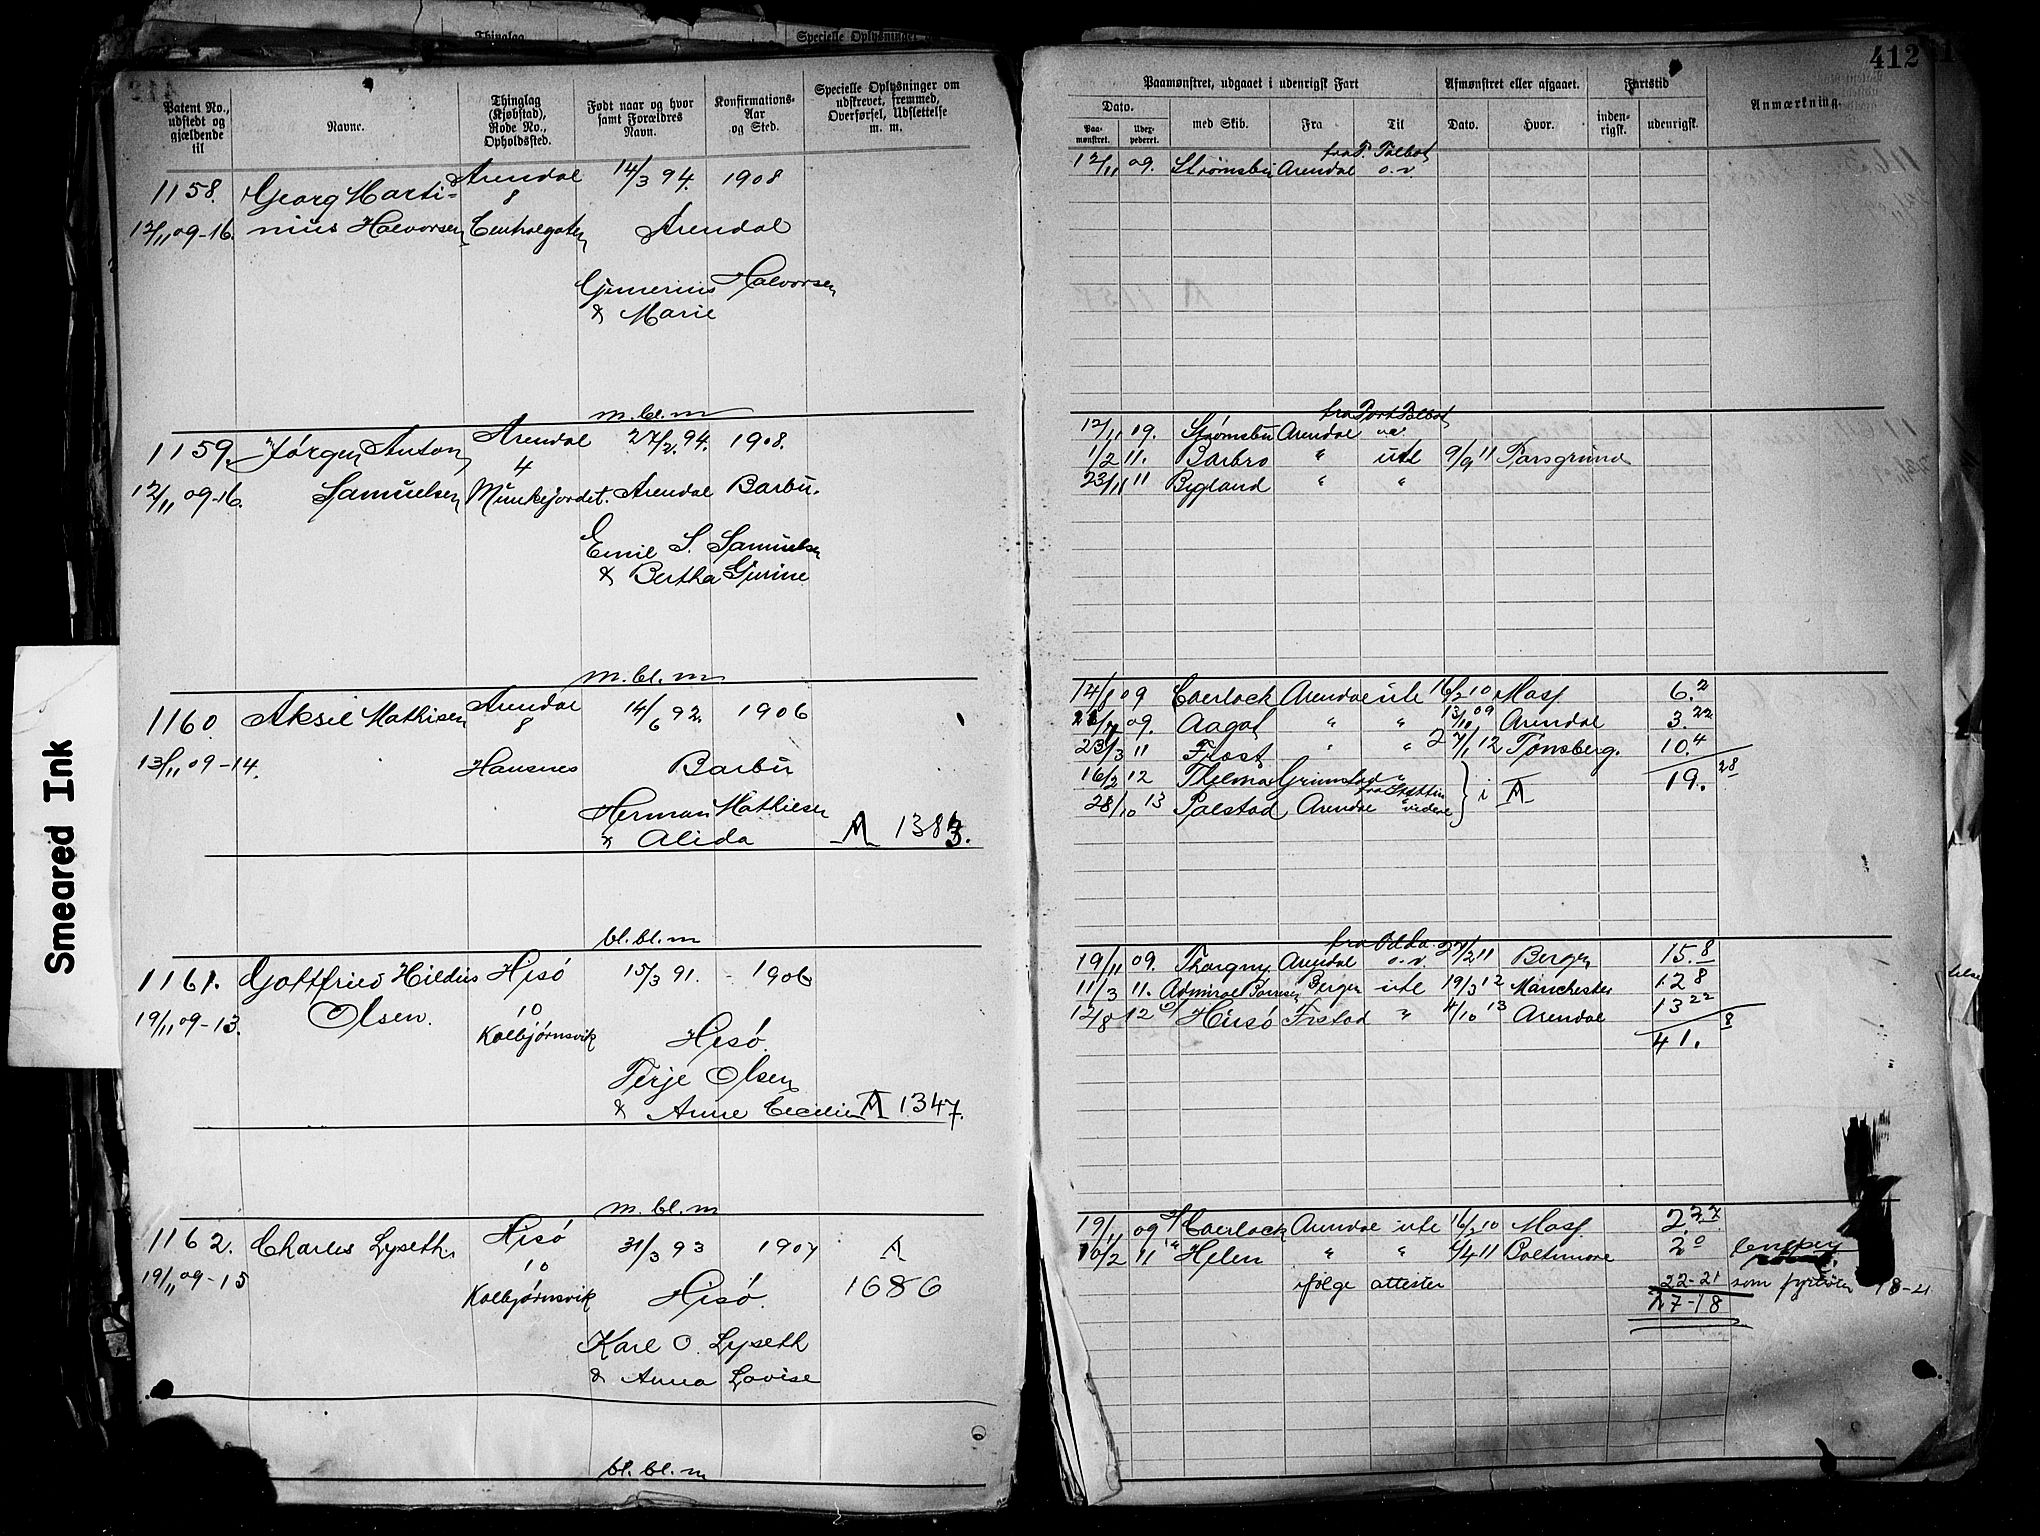 Thinglag
Specielle Oplysninger
Patent No., udstedt og gjældende til
Navne.
Thinglag (Kjøbstad), Rode No., Opholdssted.
Født naar og hvor samt Forældres Navn.
Konfirmations-Aar og Sted.
Specielle Oplysninger om udskrevet, fremmed, Overførsel, Udslettelse m. m.
1158. Georg Marti- Arendal 14/3 94. 1908
12/11 09-16. nius Halvorsen 8 Centralgaten Arendal
Gumerius Halvorsen
& Marie
m. bl. m
1159. Jørgen Anton Arendal 27/2. 94. 1908.
4
12/11 09-16. Samuelsen Munkejordet. Arendal Barbu.
Emil S. Samuelsen
& Bertha Gurine
m. bl. m
1160. Aksel Mathisen Arendal 14/6 92. 1906
8
13/11 09-14. Hansnes Barbu
Herman Mathisen
& Alida A 1383.
bl. bl. m
1161. Gottfried Hildus Hisö 15/3 91. - 1906
19/11 09-13. Olsen. 10
Kolbjørnsvik Hisö.
Terje Olsen
& Anne Cecilie A 1347.
m. bl. m
1162. Charles Lyseth. Hisö 31/3 93 1907 A
10
19/11 09-15 Kolbjørnsvik Hisö. 1686
Karl O. Lyseth
& Anna Lovise
bl. bl. m
412
Paamønstret, udgaaet i udenrigsk Fart
Afmønstret eller afgaaet.
Fartstid
Anmærkning.
Dato.
Paa-mønstret.
med Skib.
Fra
Til
Dato.
Hvor.
inden-rigsk.
udenrigsk.
fra P. Talbot
12/11 09. Strømsbu Arendal o. v.
fra Port Talbot
12/11 09. Strømsbu Arendal
1/2 11. Barbro " utl 9/9 11 Porsgrund
23/11 11 Bygland " "
14/8 09 Caerlock Arendal utl 16/2 10 Mosj. 6.2
09. Aagot " " 13/10 09 Arendal 3.22
23/3 11 Frost " " 27/1 12 Tønsberg. 10.4
16/2 12 Thelma Grimstad " 19. 28
28/10 13 Palstad Arendal fra Stettin o videre } i A
fra Odda
19/11 09. Thorgny Arendal o. v. 27/2 11 Bergen 15.8
11/3 11. Admiral Bergen utl 19/3 12 Manchester 12 8
12/8 12 Hisö Frstad " 4/10 13 Arendal 13 22
41. 8
19/11 09 Caerlock Arendal utl 16/2 10 Mosj 2 27.
10/2 11 Helen " " 6/4 11 Baltimore 2 0
ifølge attester 22-21 som fyrbøter 18-21
27-18
Smeared Ink